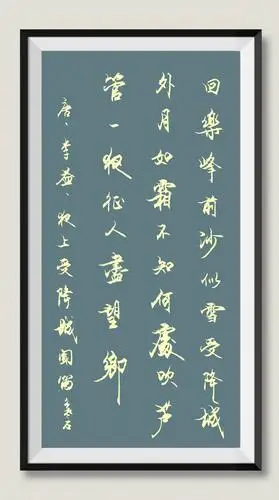 回樂峰前沙似雪受降城
外月如霜不知何處吹芦
管一夜征人盡望鄉
唐、李益、夜上受降城闻笛